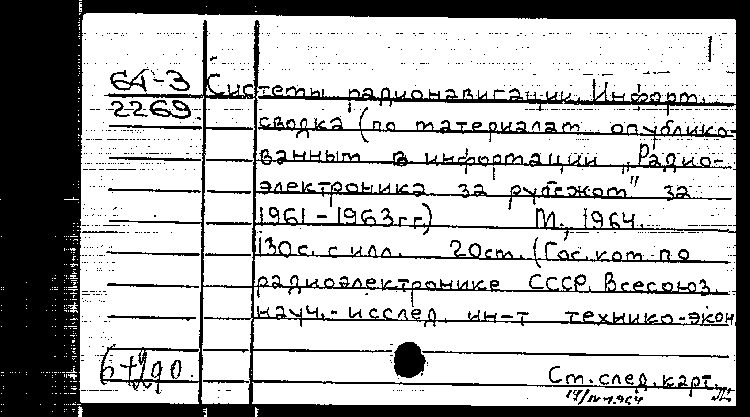 64-3
2269
Системы радионавигации. Информ.
сводка (по материалам опублико-
ванным в информации „Радио-
электроника за рубежом" за
1961-1963гг.) М., 1964.
130с. с илл. 20см. (Гос. ком по
радиоэлектронике СССР. Всесоюз.
науч.-исслед. ин-т технико-экон
6+290
Ст. след. карт.